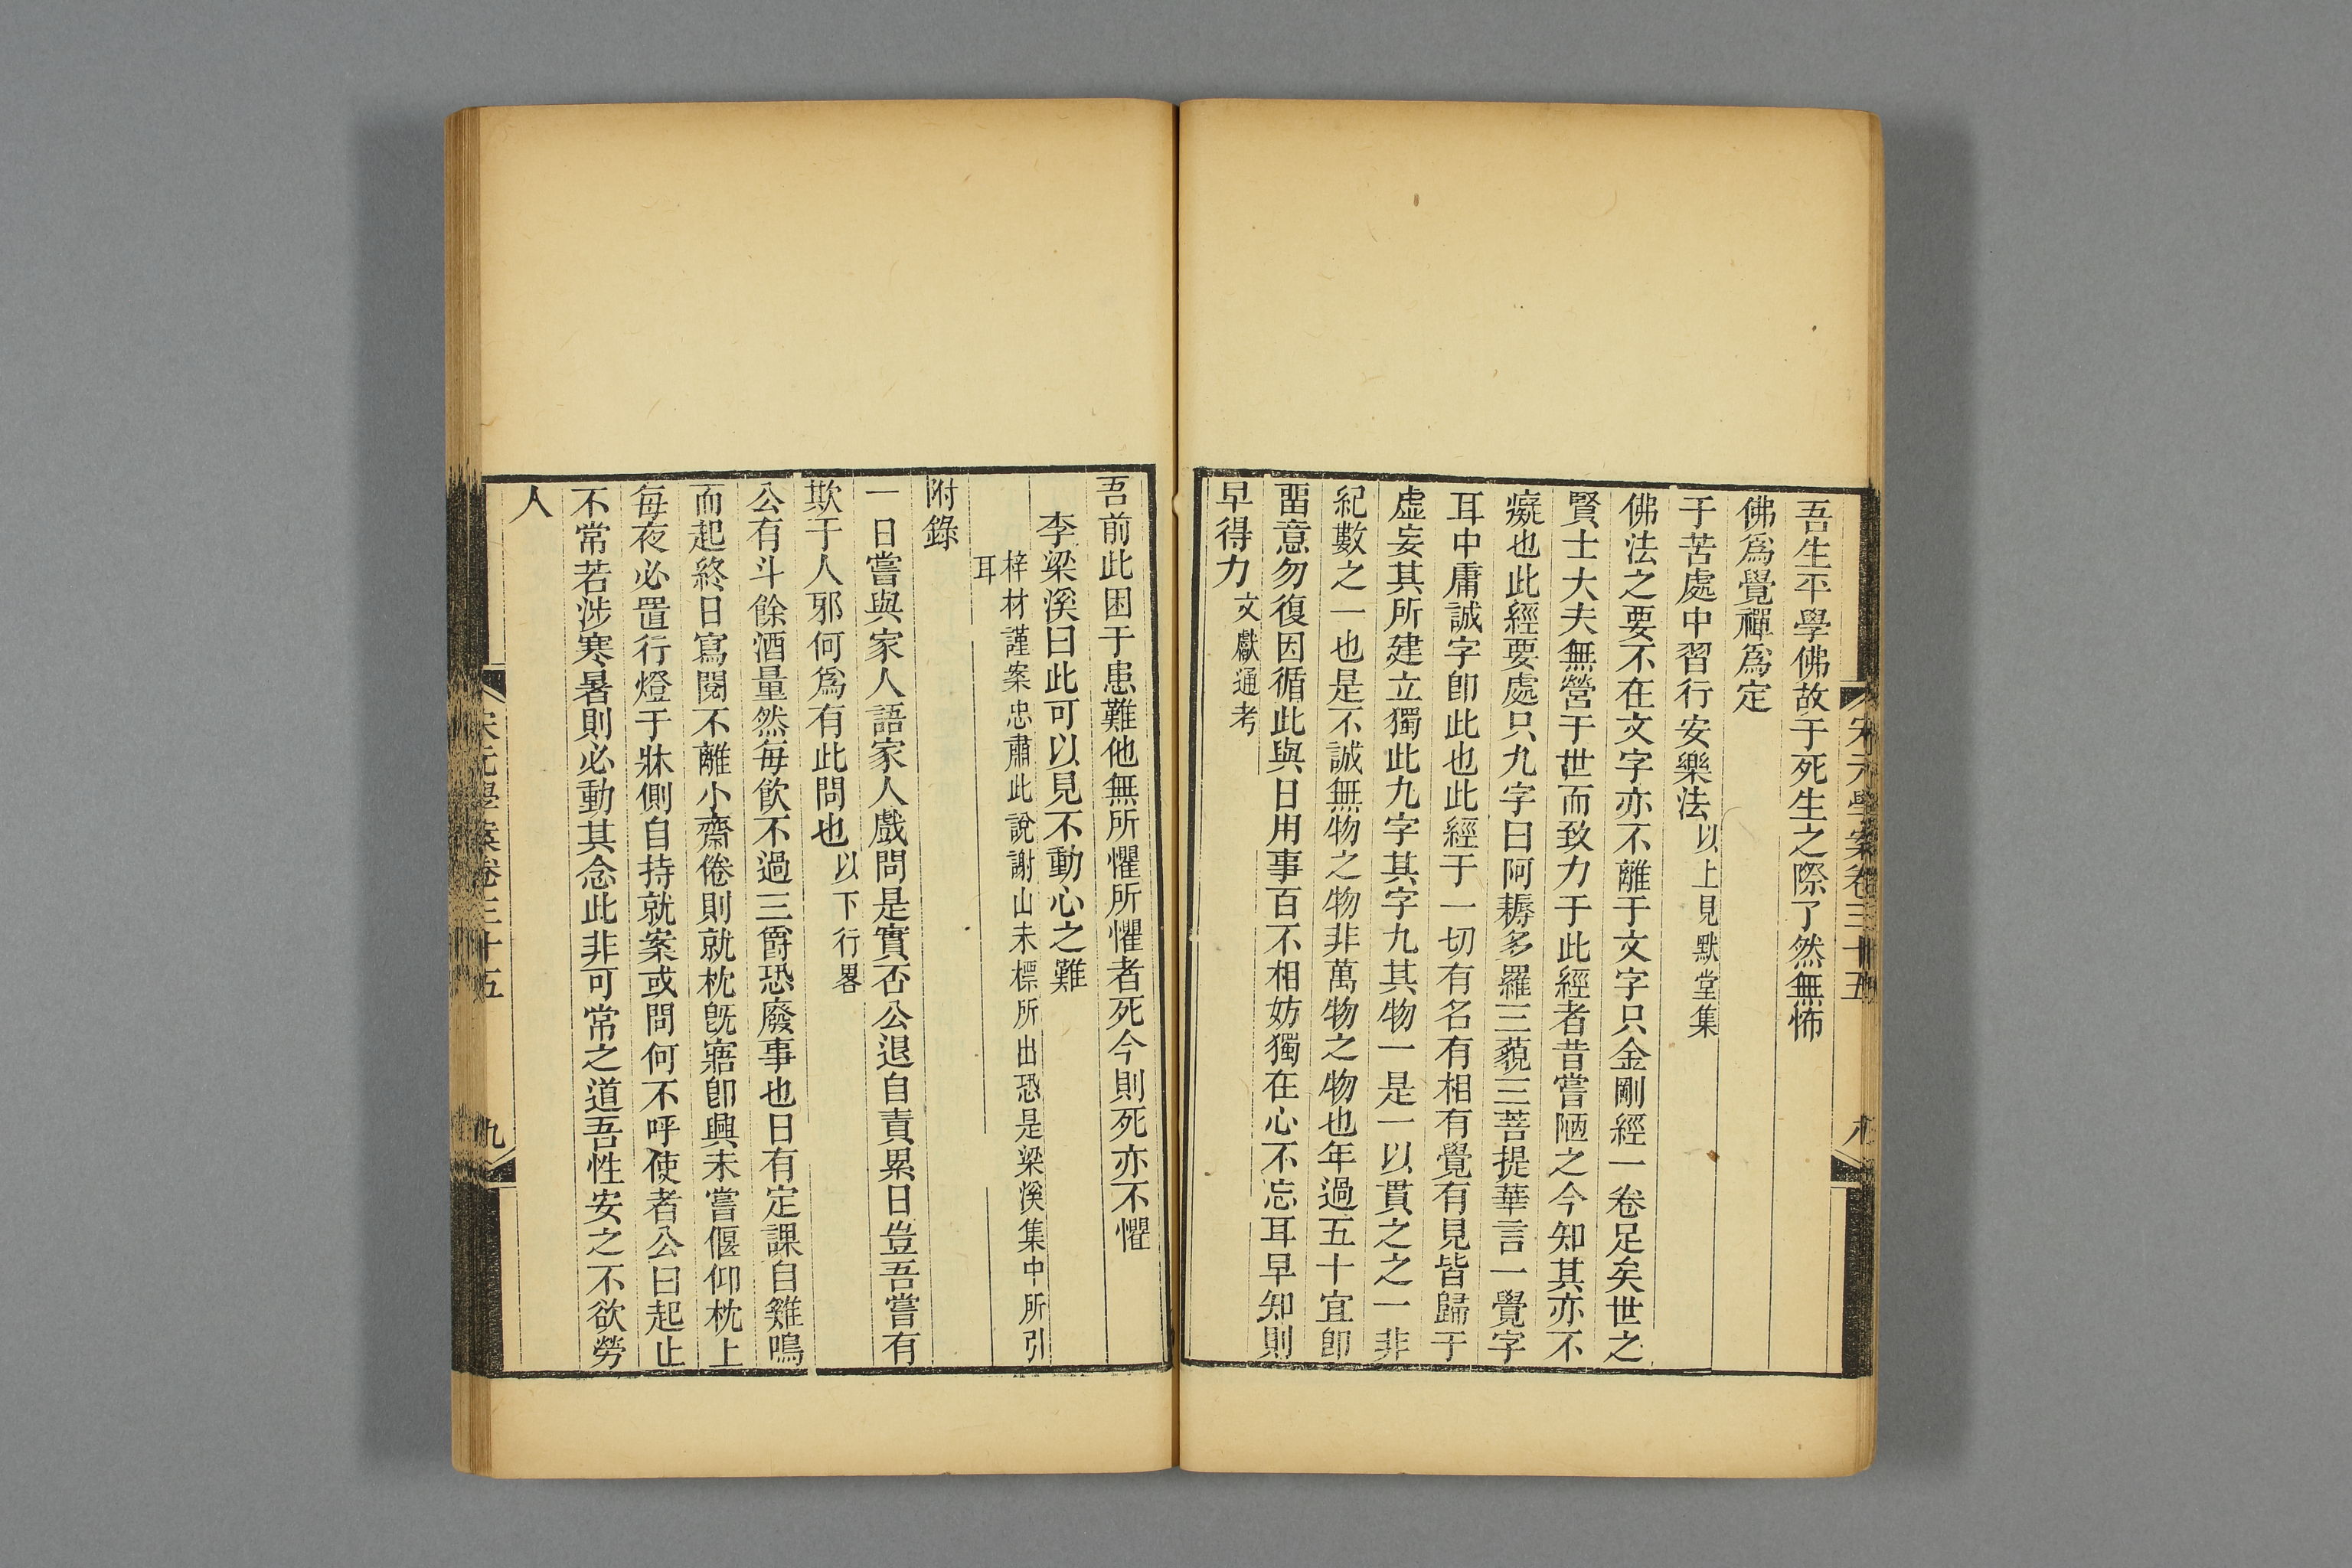 宋元學案卷三十五
八
吾生平學佛故于死生之際了然無怖
佛爲覺禪爲定
于苦處中習行安樂法以上見默堂集
佛法之要不在文字亦不離于文字只金剛經一卷足矣世之
賢士大夫無營于世而致力于此經者昔嘗陋之今知其亦不
癡也此經要處只九字曰阿耨多羅三藐三菩提華言一覺字
耳中庸誠字卽此也此經于一切有名有相有覺有見皆歸于
虛妄其所建立獨此九字其字九其物一是一以貫之之一非
紀數之一也是不誠無物之物非萬物之物也年過五十宜卽
畱意勿復因循此與日用事百不相妨獨在心不忘耳早知則
早得力文獻通考
吾前此困于患難他無所懼所懼者死今則死亦不懼
李梁溪曰此可以見不動心之難
梓材謹案忠肅此說謝山未標所出恐是梁溪集中所引
耳
附錄
一日嘗與家人語家人戲問是實否公退自責累日豈吾嘗有
欺于人邪何爲有此問也以下行畧
公有斗餘酒量然每飲不過三爵恐廢事也日有定課自雞鳴
而起終日寫閱不離小齋倦則就枕旣寤卽興未嘗偃仰枕上
每夜必置行燈于牀側自持就案或問何不呼使者公曰起止
不常若涉寒暑則必動其念此非可常之道吾性安之不欲勞
人
宋元學案卷三十五
九